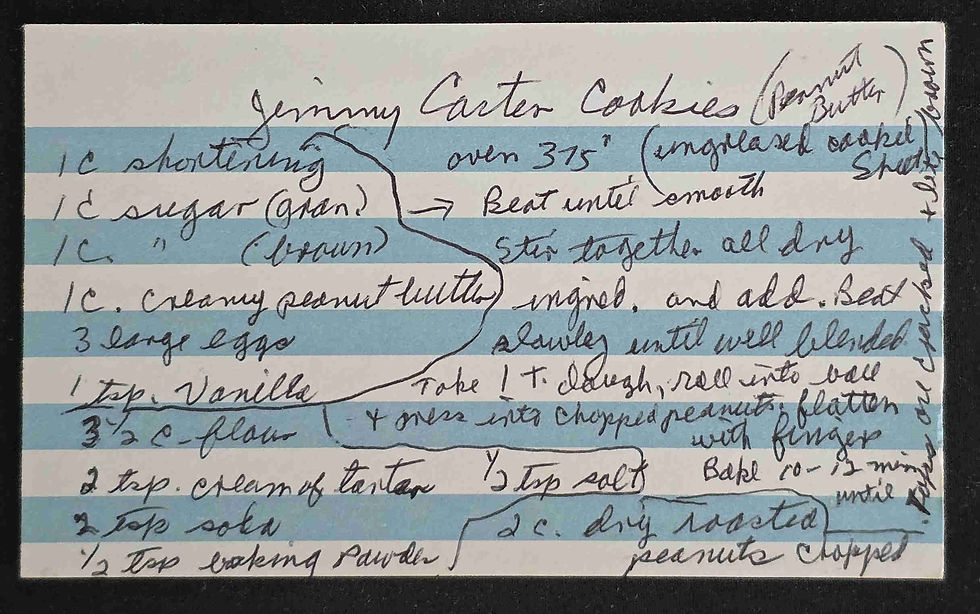 Jimmy Carter Cookies (Peanut Butter)
1 c shortening
1 c sugar (gran.)
1 c. " (brown)
1 c. creamy peanut butter
3 large eggs
1 tsp. Vanilla
3 1/2 c - flour
2 tsp. cream of tartar
2 tsp soda
1/2 tsp baking powder
1/2 tsp salt
2 c. dry roasted
peanuts chopped
oven 375° (ungreased cookie
Sheet)
→ Beat until smooth
Stir together all dry
ingred. and add. Beat
slowley until well blended.
Take 1 T. dough, roll into ball
+ press into chopped peanuts. flatten
with finger
Bake 10-12 min
until
tops are cracked + lite brown